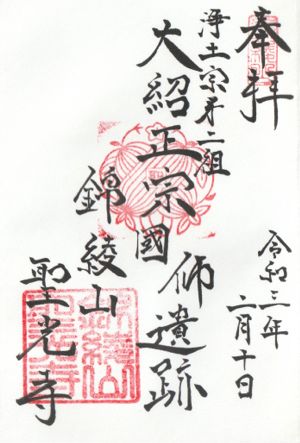 奉拝
令和三年
二月十日
浄土宗㐧二祖
大紹正宗國師遺跡
錦綾山
聖光寺